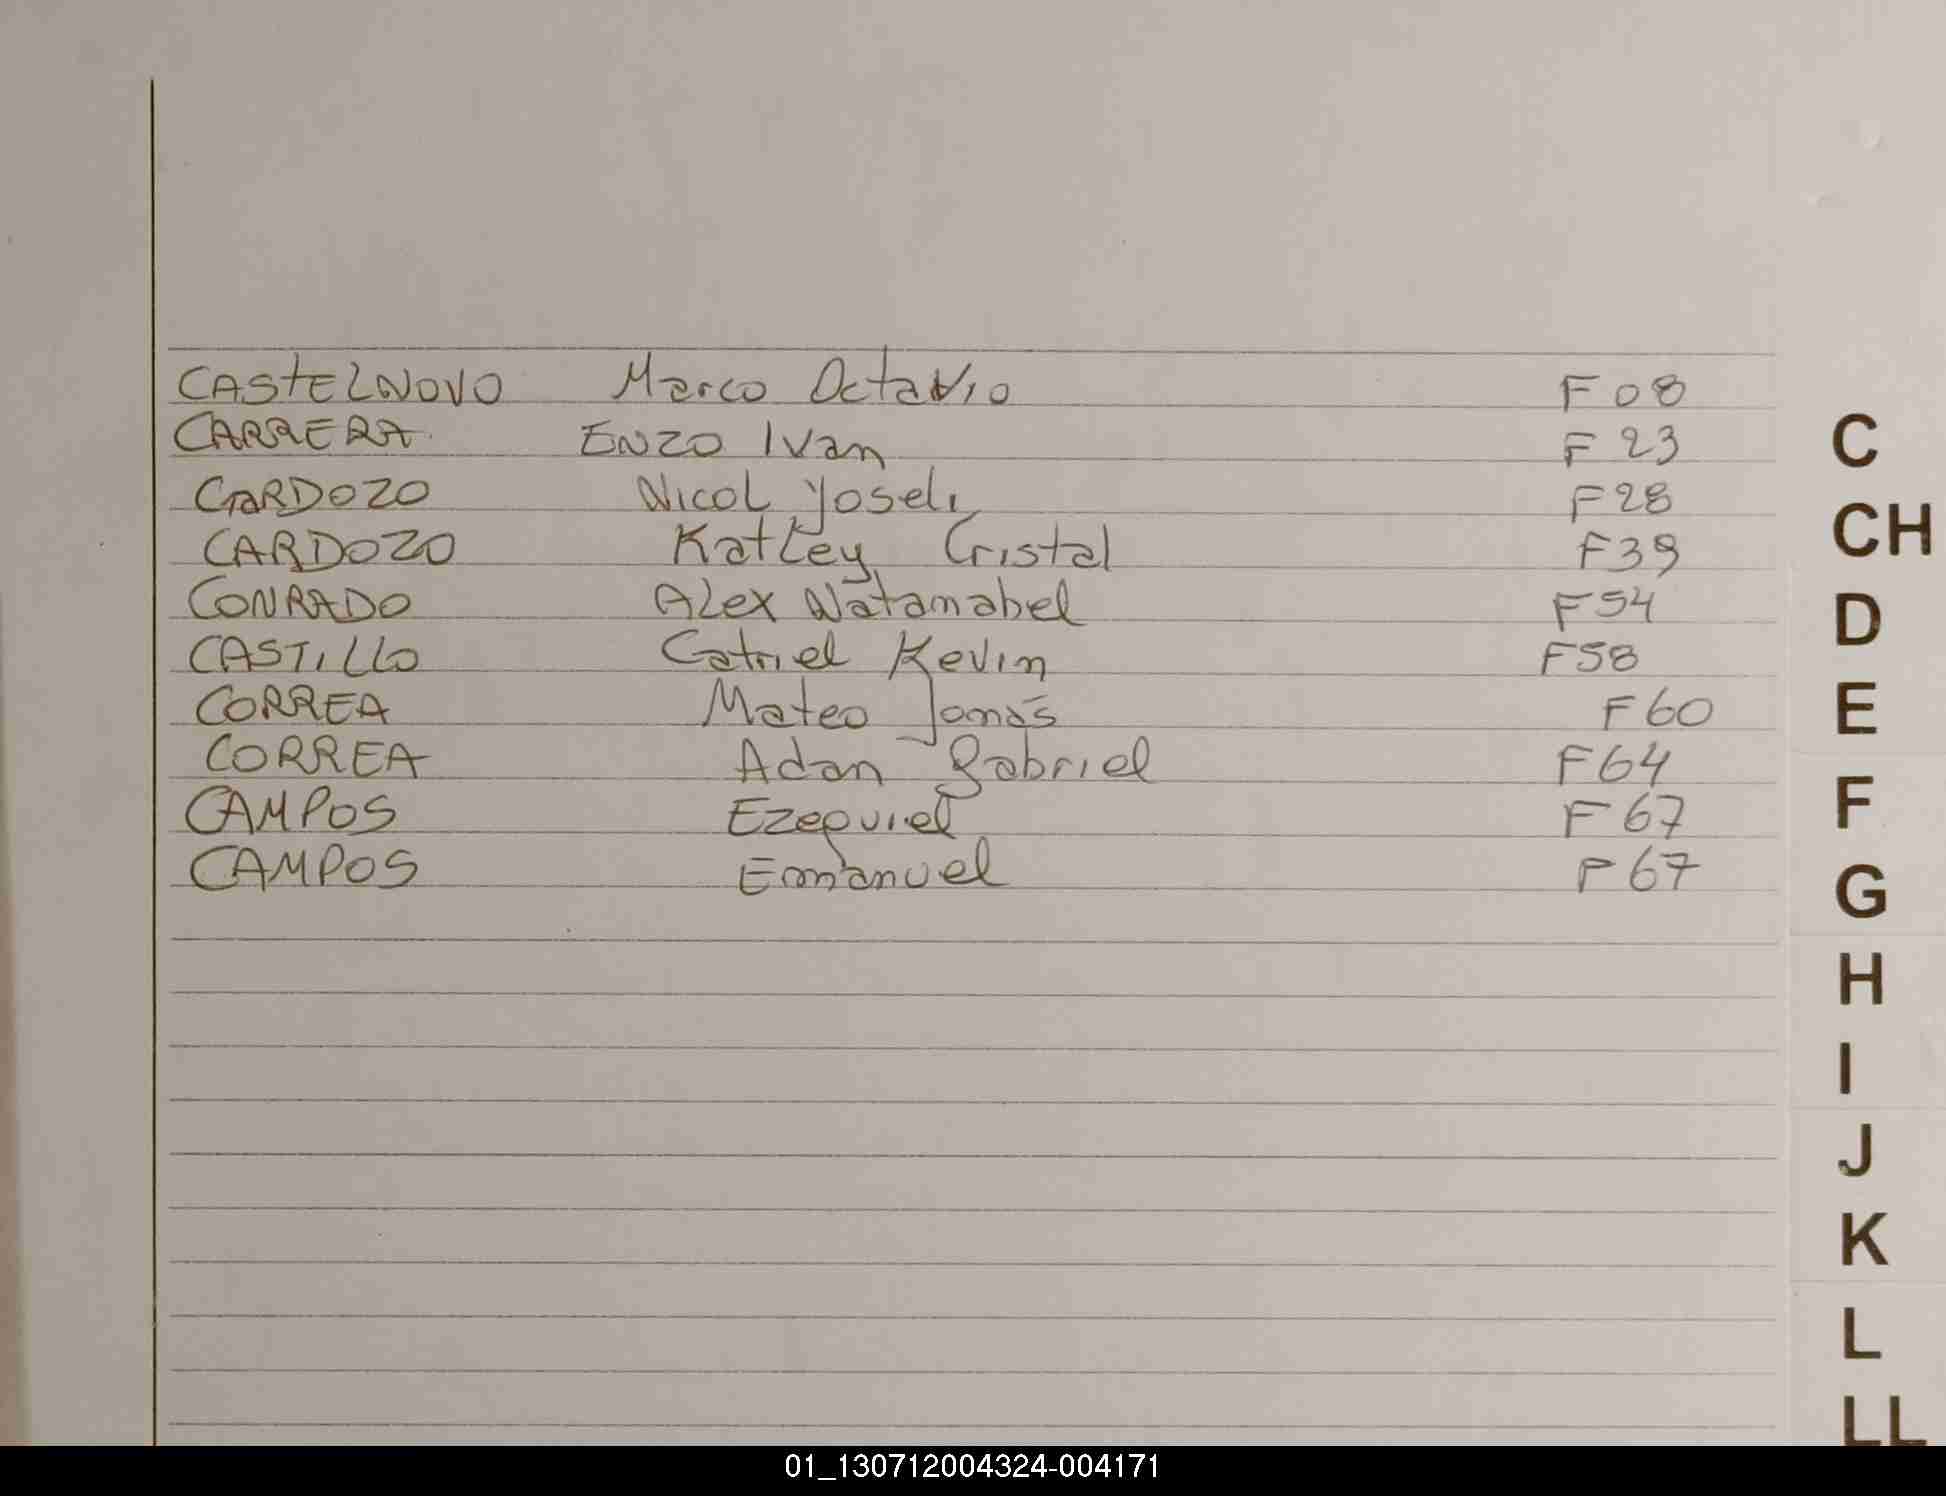 CASTELNOVO Marco Octavio F 08
CARRERA ENZO Ivan F 23
C
CARDOZO Nicol Yoseli F28
CH
CARDOZO Katley Cristal F39
CONRADO Alex Natamabel F54
D
CASTILLO Catriel Kevin F58
CORREA Mateo Jonás F60
E
CORREA Adan Gabriel F64
CAMPOS Ezequiel F 67
F
CAMPOS Emanuel F 67
G
H
I
J
K
L
LL
01_130712004324-004171